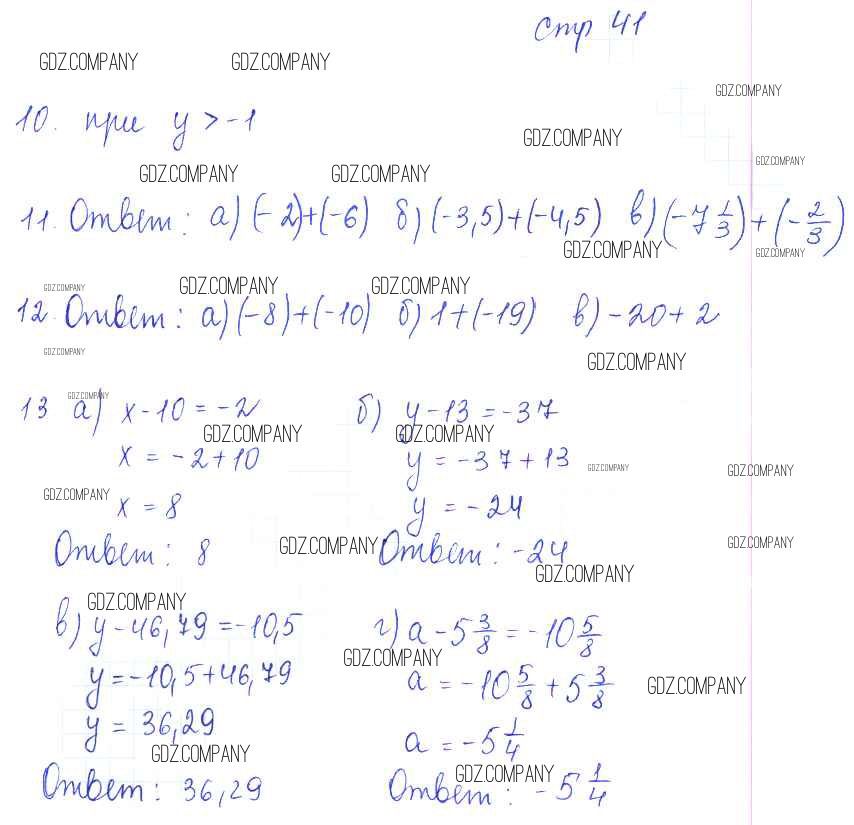 Стр 41
GDZ.COMPANY GDZ.COMPANY
GDZ.COMPANY
10. при y > -1
GDZ.COMPANY
GDZ.COMPANY
GDZ.COMPANY GDZ.COMPANY
11. Ответ: а) (-2)+(-6) б) (-3,5)+(-4,5) в) (-7 1/3)+(-2/3)
GDZ.COMPANY GDZ.COMPANY
GDZ.COMPANY GDZ.COMPANY GDZ.COMPANY
12. Ответ: а) (-8)+(-10) б) 1+(-19) в) -20+2
GDZ.COMPANY GDZ.COMPANY
GDZ.COMPANY
13 а) x-10=-2 б) y-13=-37
GDZ.COMPANY GDZ.COMPANY
x = -2+10 y = -37+13
GDZ.COMPANY GDZ.COMPANY
GDZ.COMPANY
x = 8 y = -24
Ответ: 8 GDZ.COMPANY Ответ: -24
GDZ.COMPANY
GDZ.COMPANY
GDZ.COMPANY
в) y-46,79=-10,5 г) a-5 3/8=-10 5/8
GDZ.COMPANY
y=-10,5+46,79 a = -10 5/8+5 3/8
GDZ.COMPANY
y = 36,29 a = -5 1/4
GDZ.COMPANY
GDZ.COMPANY
Ответ: 36,29 Ответ: -5 1/4